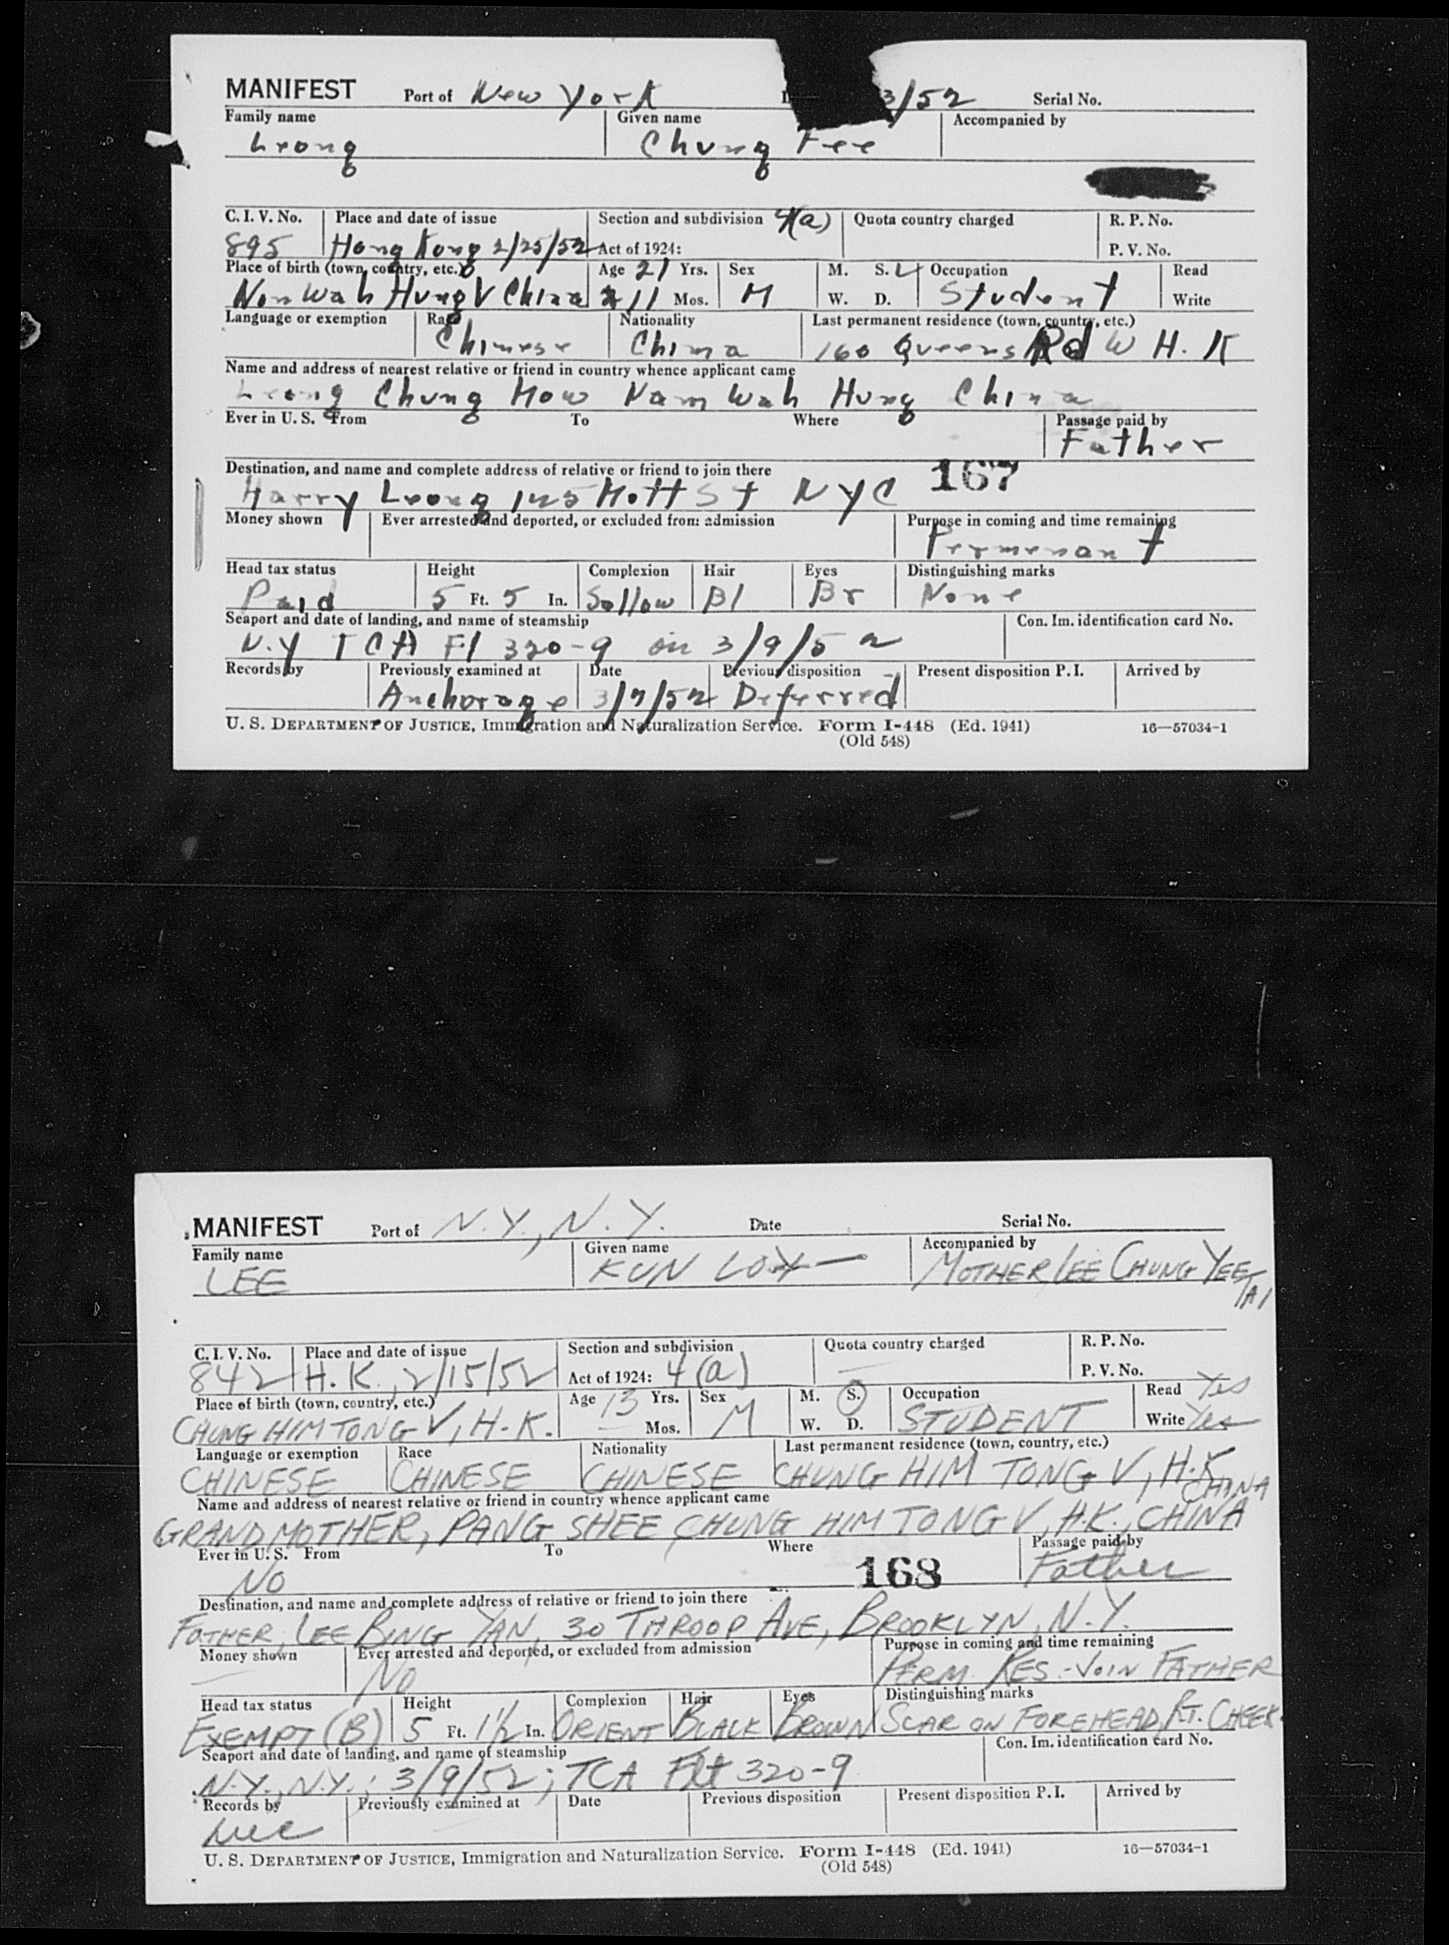 MANIFEST Port of New York 3/52 Serial No.
Family name Given name Accompanied by
Leong Chung Fee
C. I. V. No. Place and date of issue Section and subdivision 4(a) Quota country charged R. P. No.
895 Hong Kong 2/25/52 Act of 1924: P. V. No.
Place of birth (town, country, etc.) Age 21 Yrs. Sex M. S. Occupation Read
Nom Wah Hung V China 11 Mos. M W. D. Student Write
Language or exemption Race Nationality Last permanent residence (town, country, etc.)
Chinese China 160 Queens Rd W H. K
Name and address of nearest relative or friend in country whence applicant came
Leong Chung How Nam Wah Hung China
Ever in U. S. From To Where Passage paid by
Father
Destination, and name and complete address of relative or friend to join there 167
Harry Leong 125 Mott St NYC
Money shown Ever arrested and deported, or excluded from admission Purpose in coming and time remaining
Permenant
Head tax status Height Complexion Hair Eyes Distinguishing marks
Paid 5 Ft. 5 In. Sollow Bl Br None
Seaport and date of landing, and name of steamship Con. Im. identification card No.
N.Y TCA Fl 320-9 on 3/9/52
Records by Previously examined at Date Previous disposition Present disposition P. I. Arrived by
Anchorage 3/7/52 Deferred
U. S. DEPARTMENT OF JUSTICE, Immigration and Naturalization Service. Form I-448 (Ed. 1941) 16—57034-1
(Old 548)
MANIFEST Port of N.Y., N.Y. Date Serial No.
Family name Given name Accompanied by
LEE KUN LOY MOTHER LEE CHUNG YEE TAI
C. I. V. No. Place and date of issue Section and subdivision Quota country charged R. P. No.
842 H. K., 2/15/52 Act of 1924: 4(a) — P. V. No.
Place of birth (town, country, etc.) Age 13 Yrs. Sex M. S. Occupation Read Yes
CHUNG HIM TONG V, H.K. — Mos. M W. D. STUDENT Write Yes
Language or exemption Race Nationality Last permanent residence (town, country, etc.)
CHINESE CHINESE CHINESE CHUNG HIM TONG V, H.K CHINA
Name and address of nearest relative or friend in country whence applicant came
GRANDMOTHER, PANG SHEE, CHUNG HIM TONG V, H.K., CHINA
Ever in U. S. From To Where Passage paid by
NO 168 Father
Destination, and name and complete address of relative or friend to join there
FATHER, LEE BING YAN, 30 THROOP AVE, BROOKLYN, N.Y.
Money shown Ever arrested and deported, or excluded from admission Purpose in coming and time remaining
— NO PERM. RES.-JOIN FATHER
Head tax status Height Complexion Hair Eyes Distinguishing marks
EXEMPT (B) 5 Ft. 1½ In. ORIENT BLACK BROWN SCAR ON FOREHEAD, RT. CHEEK.
Seaport and date of landing, and name of steamship Con. Im. identification card No.
N.Y., N.Y.; 3/9/52; TCA Flt 320-9
Records by Previously examined at Date Previous disposition Present disposition P. I. Arrived by
U. S. DEPARTMENT OF JUSTICE, Immigration and Naturalization Service. Form I-448 (Ed. 1941) 16—57034-1
(Old 548)